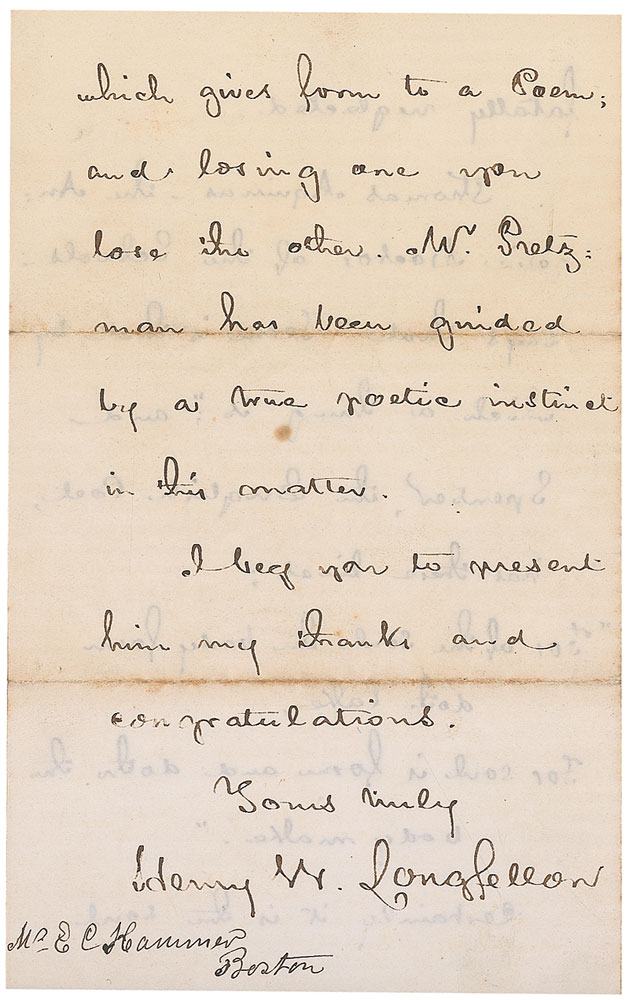 which gives form to a Poem;
and losing one you
lose the other. Mr. Pretz-
man has been guided
by a true poetic instinct
in this matter.
I beg you to present
him my thanks and
congratulations.
Yours truly
Henry W. Longfellow
Mr E C Hammer
Boston